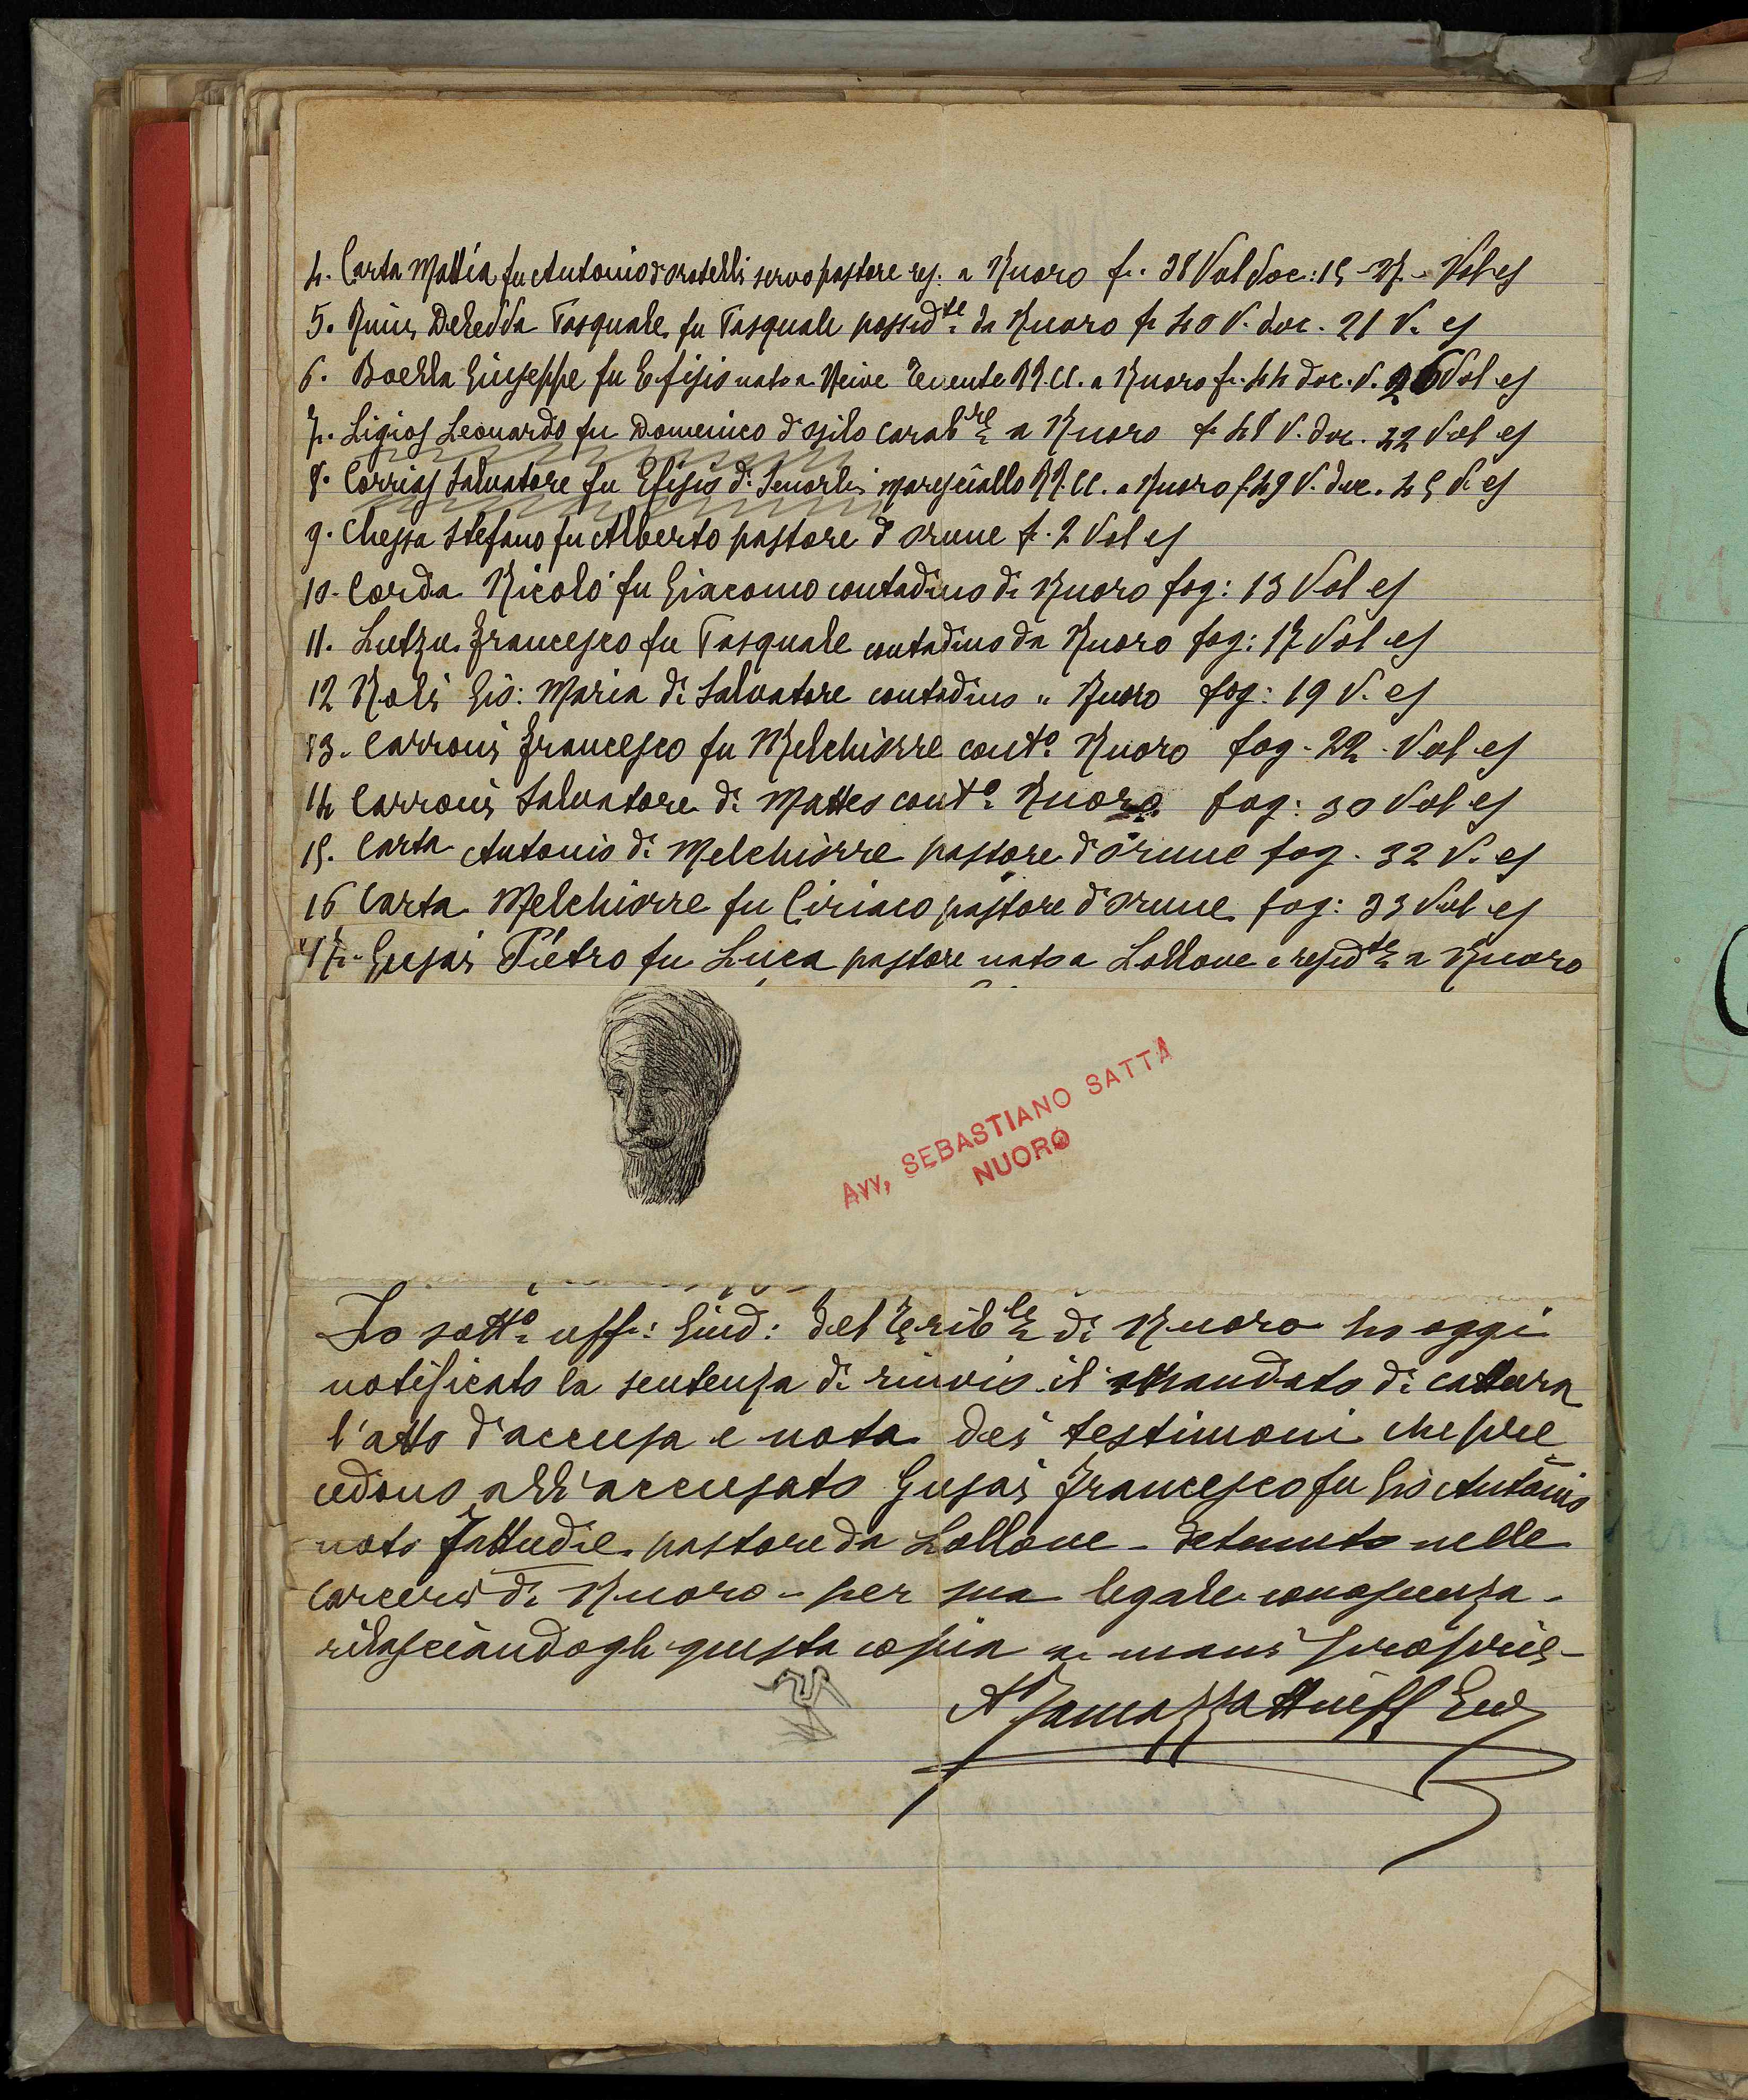 4. Carta Mattia fu Antonio d'Orotelli servo pastore res. a Nuoro f. 38 Vol doc: 15 - 27 - Vol es
5. Nuius Deledda Pasquale fu Pasquale possid.te da Nuoro f. 40 V. doc. 21 V. es
6. Boella Giuseppe fu Efisio nato a Neive Tenente RR. CC. a Nuoro f. 44 doc. V. 26 Vol es
7. Ligios Leonardo fu Domenico d'Osilo carab.re a Nuoro f. 48 V. doc. 22 Vol es
8. Corrias Salvatore fu Efisio di Senorbi maresciallo RR. CC. a Nuoro f. 49 V. doc. 45 V. es
9. Chessa Stefano fu Alberto pastore d'Orune f. 2 Vol es
10. Corda Nicolò fu Giacomo contadino di Nuoro fog: 13 Vol es
11. Lutzu Francesco fu Pasquale contadino da Nuoro fog: 17 Vol es
12 Noli Gio: Maria di Salvatore contadino " Nuoro fog: 19 V. es
13. Carroni Francesco fu Melchiorre cont.o Nuoro fog. 22. Vol es
14 Carroni Salvatore di Matteo cont.o Nuoro fog: 30 Vol es
15. Carta Antonio di Melchiorre pastore d'Orune fog. 32 V. es
16 Carta Melchiorre fu Ciriaco pastore d'Orune fog: 33 Vol es
17. Gusai Pietro fu Luca pastore nato a Lollove e resid.te a Nuoro
Avv. SEBASTIANO SATTA
NUORO
Io sott.o uff: Giud: del Trib.le di Nuoro ho oggi
notificato la sentenza di rinvio il mandato di cattura
l'atto d'accusa e nota dei testimoni che pre
cedono all'accusato Gusai Francesco fu Gio Antonio
noto pastore da Lollove - detenuto nelle
carceri di Nuoro - per sua legale conoscenza -
rilasciandogli questa copia a mani proprie -
uff Giud